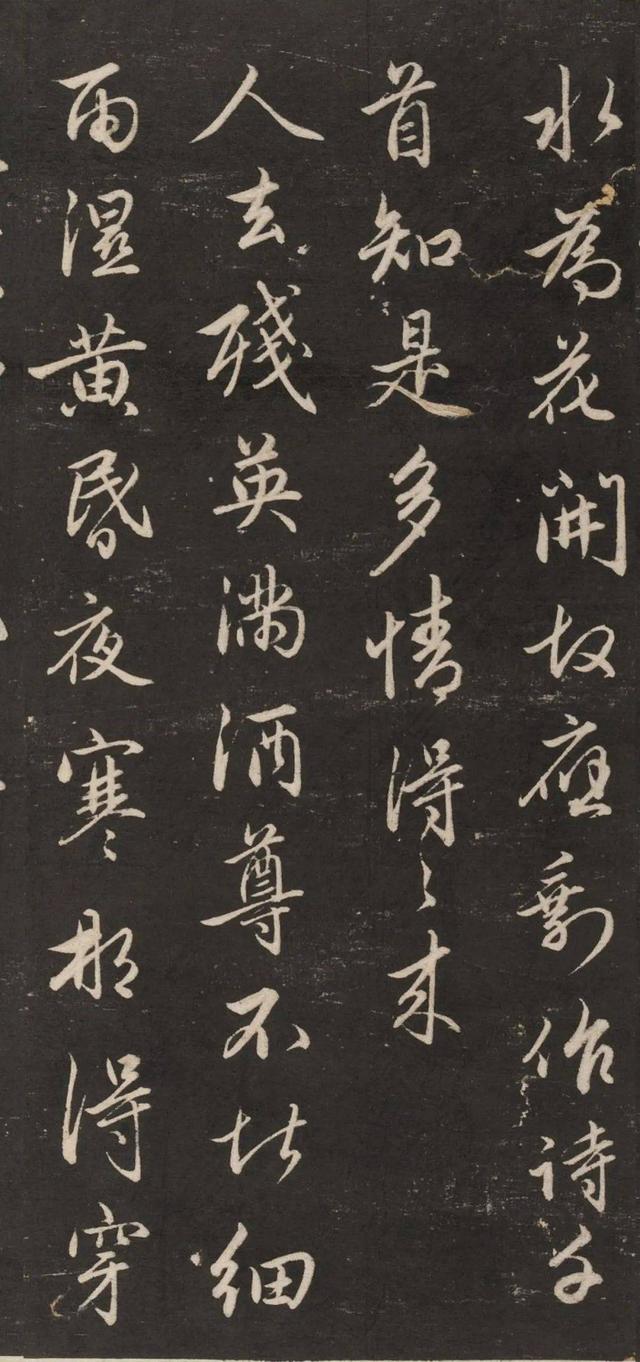 水為花開故應剩作詩千
首知是多情得々來
人去殘英滿酒尊不堪細
雨濕黃昏夜寒那得穿